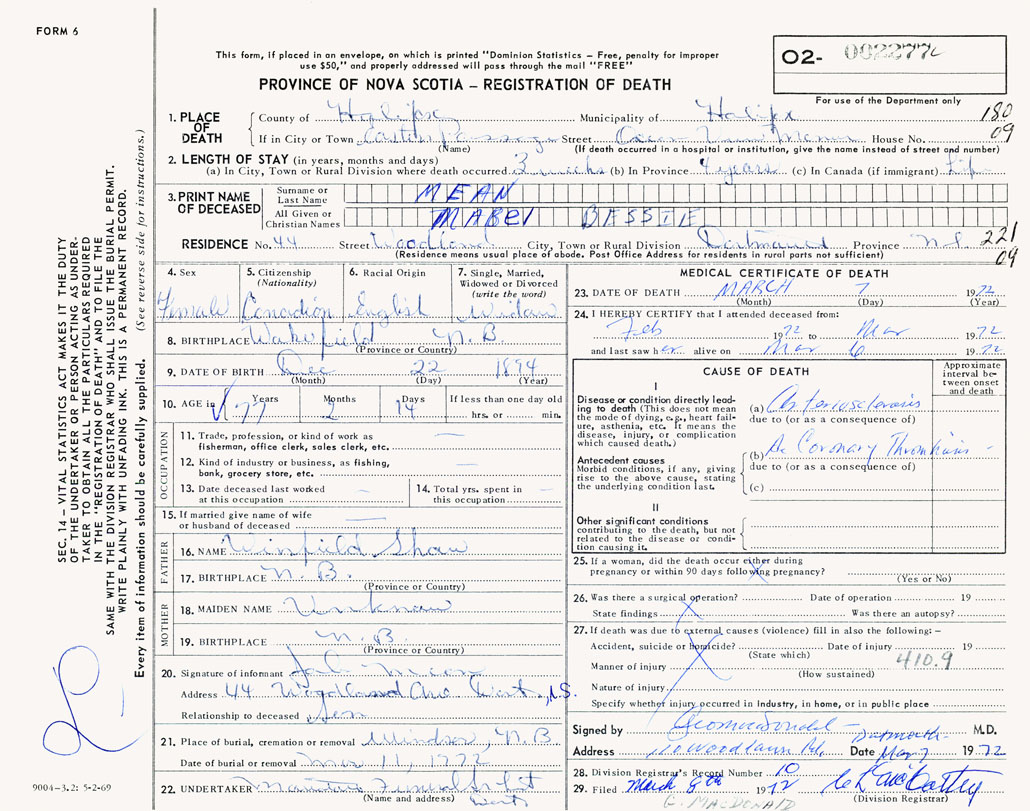 FORM 6
This form, if placed in an envelope, on which is printed "Dominion Statistics – Free, penalty for improper
use $50," and properly addressed will pass through the mail "FREE"
PROVINCE OF NOVA SCOTIA – REGISTRATION OF DEATH
O2- 002277
For use of the Department only
1. PLACE OF DEATH
County of Halifax Municipality of Halifax 180
If in City or Town Eastern Passage Street Ocean View Manor House No. 09
(Name) (If death occurred in a hospital or institution, give the name instead of street and number)
2. LENGTH OF STAY (in years, months and days)
(a) In City, Town or Rural Division where death occurred 3 weeks (b) In Province 4 years (c) In Canada (if immigrant) Life
3. PRINT NAME OF DECEASED
Surname or Last Name MEAN
All Given or Christian Names MABEl BESSIE
RESIDENCE No. 44 Street Woodland City, Town or Rural Division Dartmouth Province N.S. 221
(Residence means usual place of abode. Post Office Address for residents in rural parts not sufficient) 09
4. Sex Female
5. Citizenship (Nationality) Canadian
6. Racial Origin English
7. Single, Married, Widowed or Divorced (write the word) Widow
8. BIRTHPLACE Wakefield N.B.
(Province or Country)
9. DATE OF BIRTH Dec 22 1894
(Month) (Day) (Year)
10. AGE in 77 Years 2 Months 14 Days If less than one day old
hrs. or min.
OCCUPATION
11. Trade, profession, or kind of work as
fisherman, office clerk, sales clerk, etc. —
12. Kind of industry or business, as fishing,
bank, grocery store, etc. —
13. Date deceased last worked
at this occupation —
14. Total yrs. spent in
this occupation —
15. If married give name of wife
or husband of deceased —
FATHER
16. NAME Winfield Shaw
17. BIRTHPLACE N.B.
(Province or Country)
MOTHER
18. MAIDEN NAME Unknown
19. BIRTHPLACE N.B.
(Province or Country)
20. Signature of informant Mean
Address 44 Woodland Ave Dart. N.S.
Relationship to deceased Son
21. Place of burial, cremation or removal Windsor, N.B.
Date of burial or removal Mar 11, 1972
22. UNDERTAKER Funeral
(Name and address) Dart
MEDICAL CERTIFICATE OF DEATH
23. DATE OF DEATH MARCH 7 1972
(Month) (Day) (Year)
24. I HEREBY CERTIFY that I attended deceased from:
Feb 1972 to Mar 1972
and last saw her alive on Mar 6 1972
CAUSE OF DEATH
Approximate interval between onset and death
I
Disease or condition directly leading
to death (This does not mean
the mode of dying, e.g., heart failure,
asthenia, etc. It means the
disease, injury, or complication
which caused death.)
(a) Arteriosclerosis
due to (or as a consequence of)
Antecedent causes
Morbid conditions, if any, giving
rise to the above cause, stating
the underlying condition last.
(b) Ac Coronary Thrombosis
due to (or as a consequence of)
(c)
II
Other significant conditions
contributing to the death, but not
related to the disease or condition
causing it.
25. If a woman, did the death occur either during
pregnancy or within 90 days following pregnancy?
(Yes or No)
26. Was there a surgical operation? Date of operation 19
State findings Was there an autopsy?
27. If death was due to external causes (violence) fill in also the following: –
Accident, suicide or homicide? Date of injury 19
(State which) 410.9
Manner of injury
(How sustained)
Nature of injury
Specify whether injury occurred in industry, in home, or in public place
Signed by MacDonald Dartmouth M.D.
Address 110 Woodlawn Rd. Date Mar 7 1972
28. Division Registrar's Record Number 10
29. Filed March 8th 1972
(Division Registrar)
G. MACDONALD
SEC. 14 – VITAL STATISTICS ACT MAKES IT THE DUTY
OF THE UNDERTAKER OR PERSON ACTING AS UNDER-
TAKER TO OBTAIN ALL THE PARTICULARS REQUIRED
IN THE "REGISTRATION OF DEATH" AND TO FILE THE
SAME WITH THE DIVISION REGISTRAR WHO SHALL ISSUE THE BURIAL PERMIT.
WRITE PLAINLY WITH UNFADING INK. THIS IS A PERMANENT RECORD.
Every item of information should be carefully supplied. (See reverse side for instructions.)
9004-3.2: 5-2-69